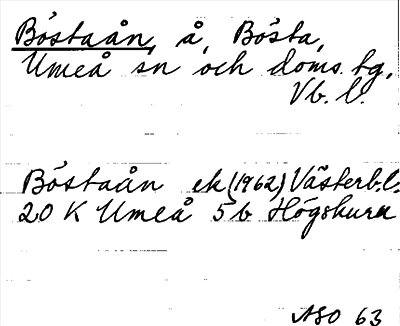 Bö́staån, å, Bö́sta,
Umeå sn och doms. tg,
Vb. l.
Bö́staån ek (1962) Västerb.l.
20 K Umeå 5b Högskuru
ASO 63